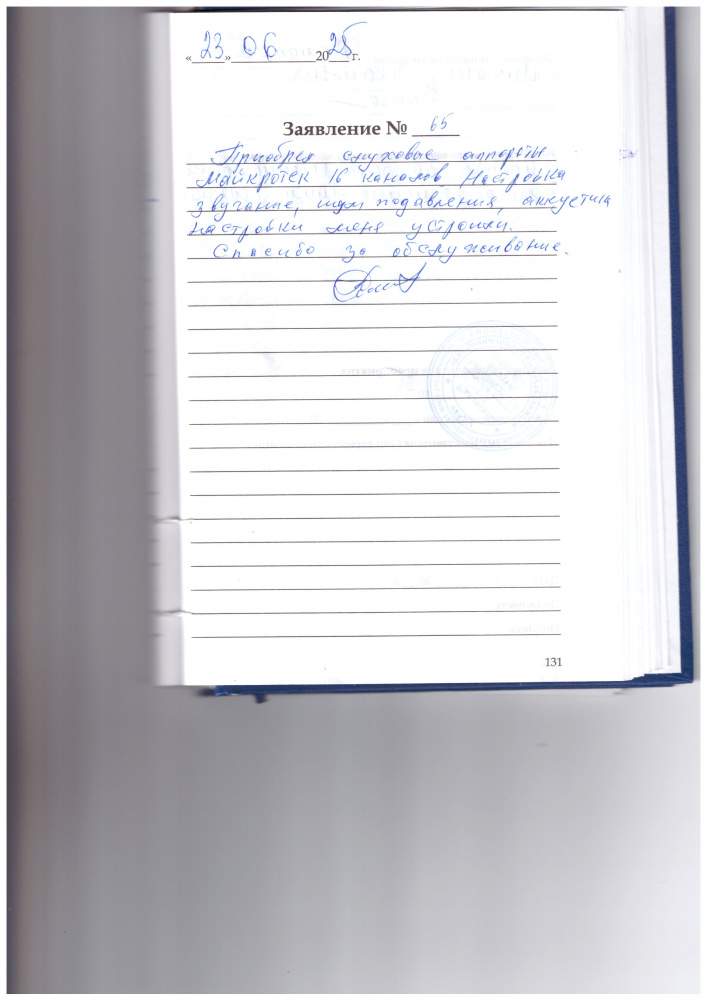 « 23 » 06 2025 г.
Заявление № 65
Приобрел слуховые аппараты
Майкротек 16 каналов Настройка
звучание, шум подавления, аккустика
настройки меня устроили.
Спасибо за обслуживание.
131